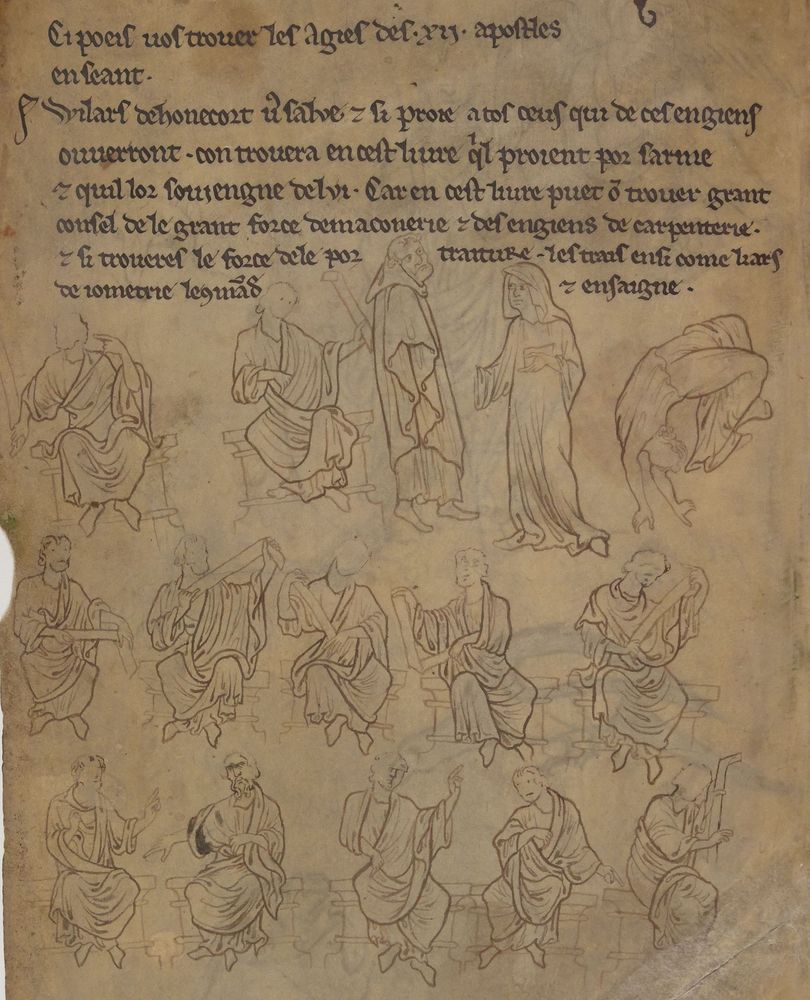 Ci poeis vos trouer les Agies des .xij. apostles
en seant.
Wilars dehonecort v̾ salve ⁊ si proie a tos ceus qui de ces engiens
ouverront . con trovera en cest livre q̾l proient por sarme
⁊ quil lor soviengne de lvi . Car en cest livre puet ō trover grant
consel de le grant force de maconerie ⁊ des engiens de carpenterie .
⁊ si troveres le force de le por traiture . les trais ensi come liars
de iometrie le ꝯmād ⁊ ensaigne .